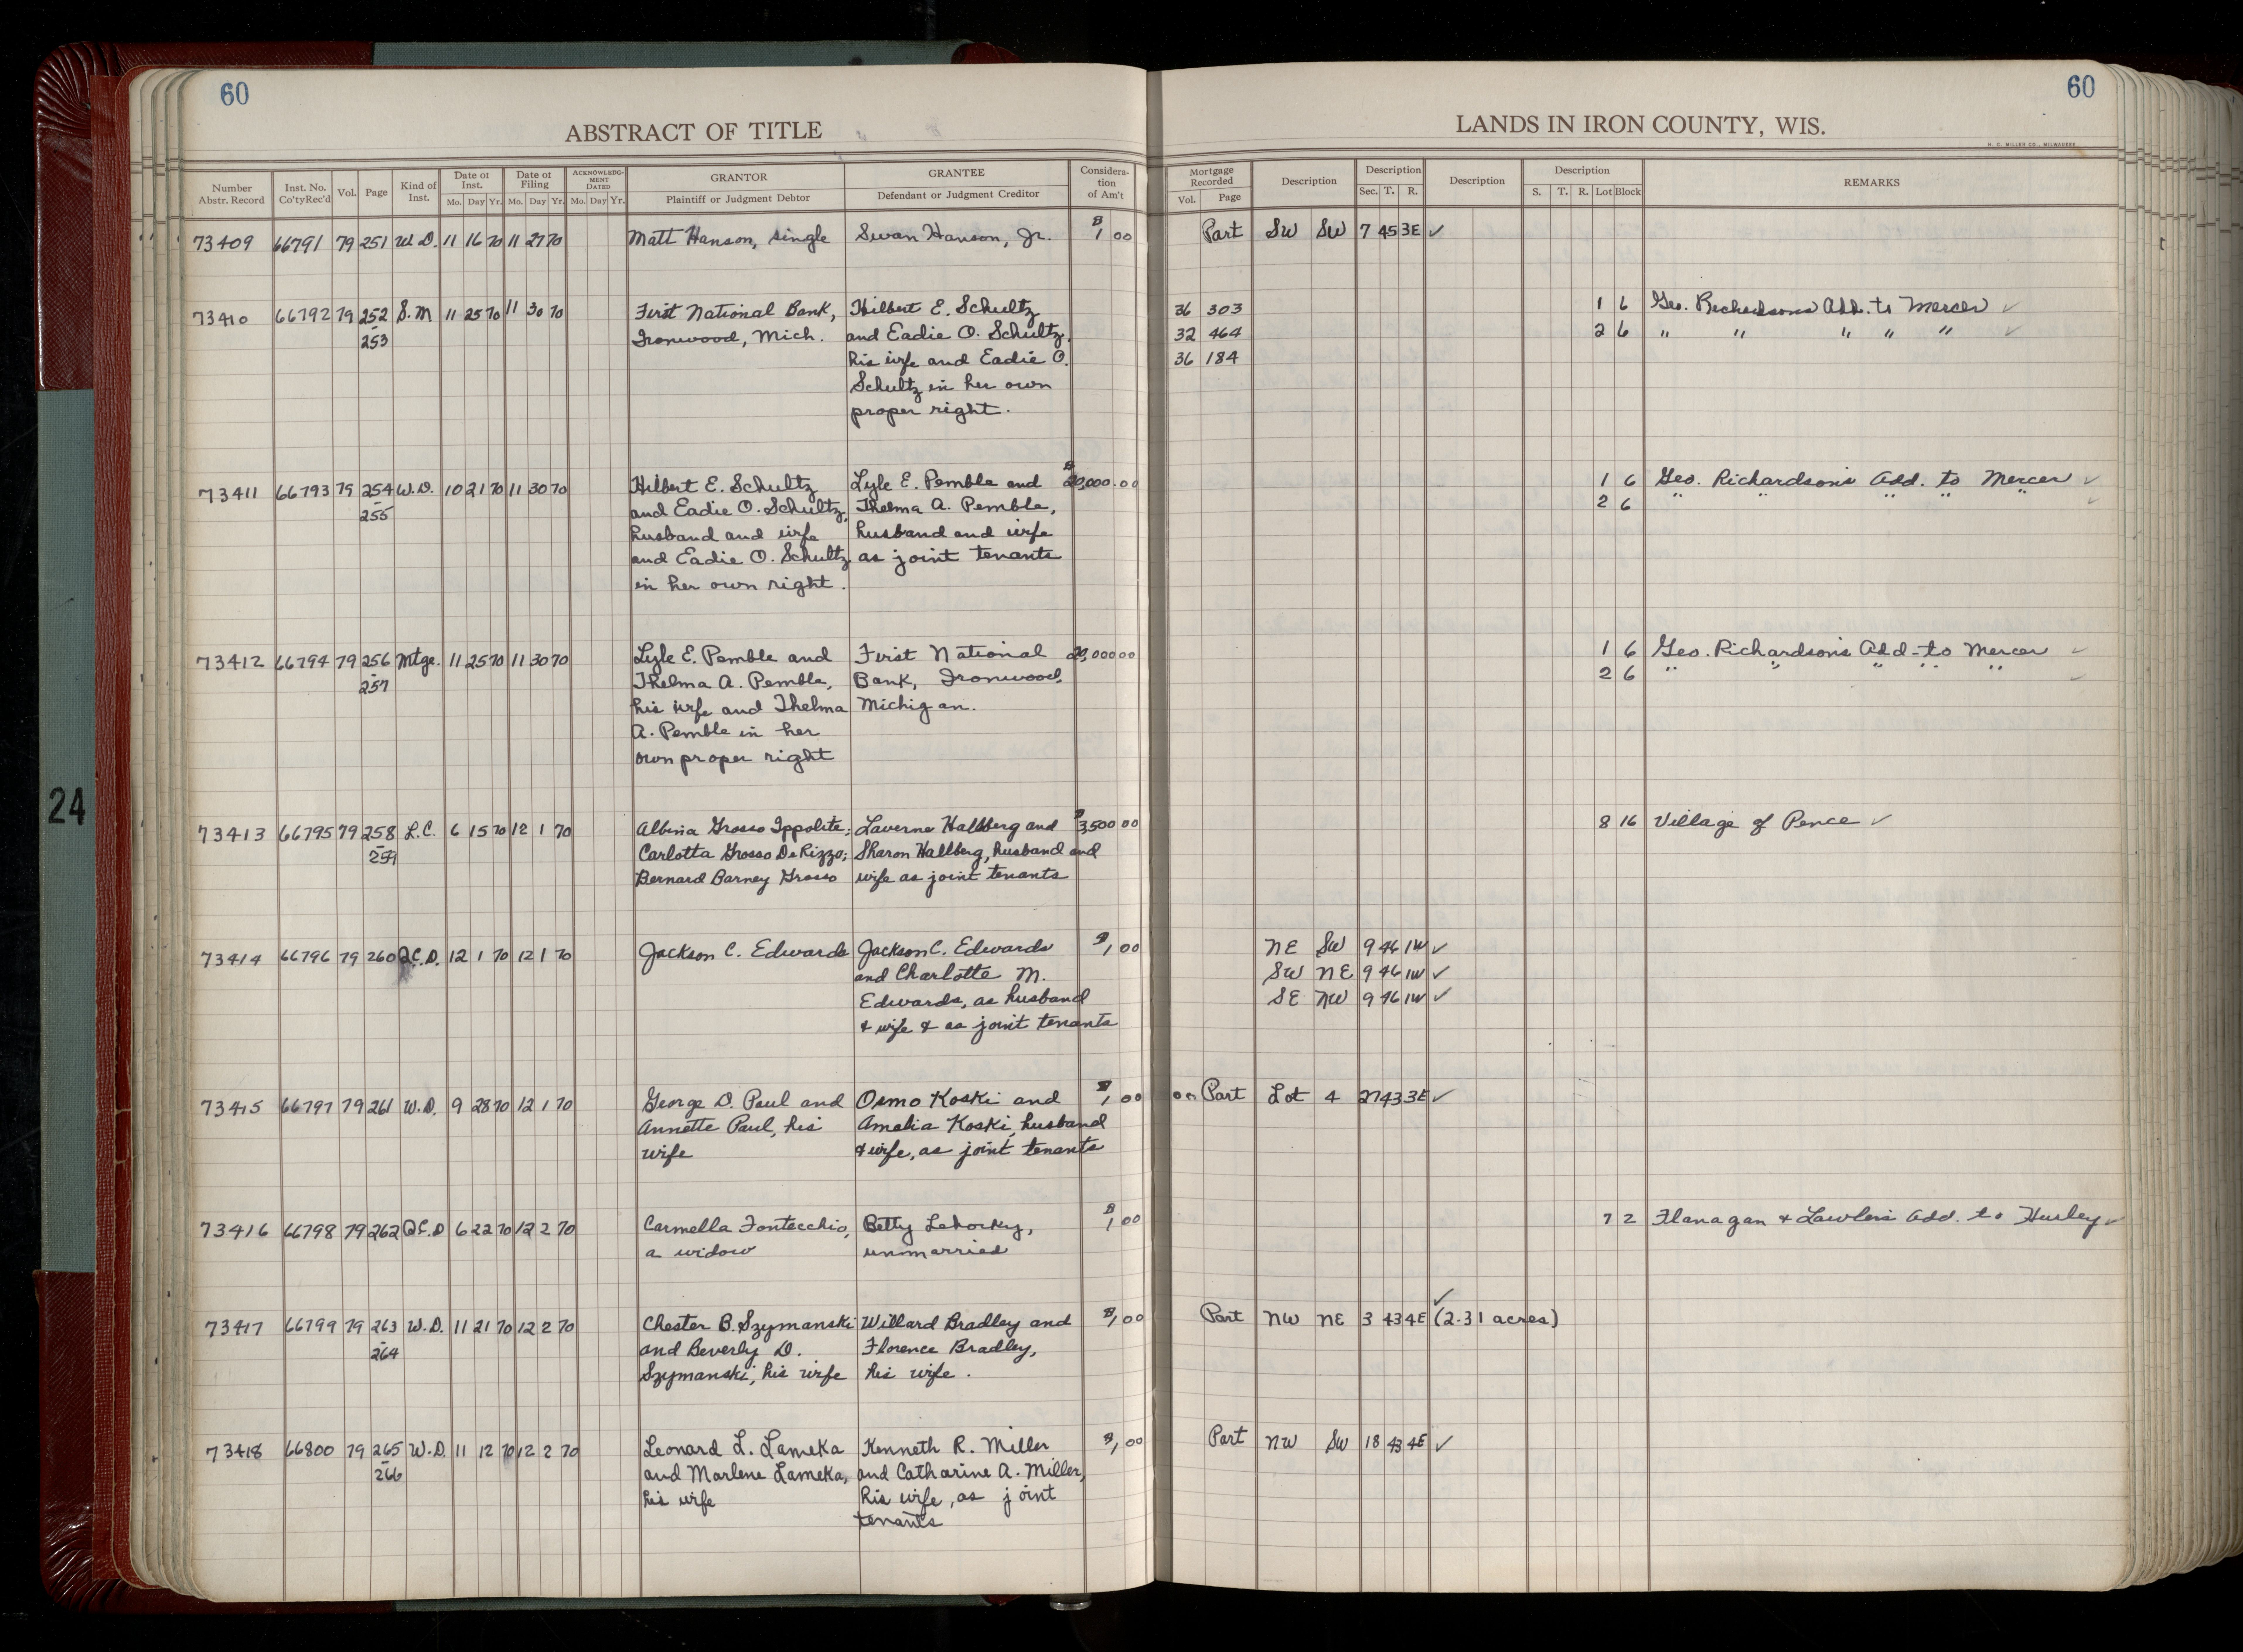 60
60
ABSTRACT OF TITLE
LANDS IN IRON COUNTY, WIS.
H. C. MILLER CO., MILWAUKEE
Number Abstr. Record | Inst. No. Co'ty Rec'd | Vol. | Page | Kind of Inst. | Date of Inst. Mo. Day Yr. | Date of Filing Mo. Day Yr. | ACKNOWLEDGMENT DATED Mo. Day Yr. | GRANTOR Plaintiff or Judgment Debtor | GRANTEE Defendant or Judgment Creditor | Consideration of Am't | Mortgage Recorded Vol. Page | Description | Description Sec. T. R. | Description | Description S. T. R. Lot Block | REMARKS
73409 66791 79 251 W.D. 11 16 70 11 27 70 Matt Hanson, single Swan Hanson, Jr. $1 00 Part SW SW 7 45 3E ✓
73410 66792 79 252 S.M 11 25 70 11 30 70 First National Bank, Hilbert E. Schultz 36 303 1 6 Geo. Richardsons Add. to Mercer ✓
253 Ironwood, Mich. and Eadie O. Schultz, 32 464 2 6 " " " " " ✓
his wife and Eadie O. 36 184
Schultz in her own
proper right.
73411 66793 79 254 W.D. 10 21 70 11 30 70 Hilbert E. Schultz Lyle E. Pemble and $20,000.00 1 6 Geo. Richardson's Add. to Mercer ✓
255 and Eadie O. Schultz, Thelma A. Pemble, 2 6 " " " " " ✓
husband and wife husband and wife
and Eadie O. Schultz as joint tenants
in her own right.
73412 66794 79 256 Mtge. 11 25 70 11 30 70 Lyle E. Pemble and First National 20,000 00 1 6 Geo. Richardson's Add-to Mercer ✓
257 Thelma A. Pemble, Bank, Ironwood, 2 6 " " " " " ✓
his wife and Thelma Michigan.
A. Pemble in her
own proper right
24
73413 66795 79 258 L.C. 6 15 70 12 1 70 Albina Grosso Ippolite; Laverne Hallberg and $3,500 00 8 16 Village of Pence ✓
259 Carlotta Grosso DeRizzo; Sharon Hallberg, husband and
Bernard Barney Grosso wife as joint tenants
73414 66796 79 260 Q.C.D. 12 1 70 12 1 70 Jackson C. Edwards Jackson C. Edwards $1,00 NE SW 9 46 1W ✓
and Charlotte M. SW NE 9 46 1W ✓
Edwards, as husband SE NW 9 46 1W ✓
& wife & as joint tenants
73415 66797 79 261 W.D. 9 28 70 12 1 70 George D. Paul and Osmo Koski and $1,00 Part Lot 4 27 43 3E ✓
Annette Paul, his Amalia Koski, husband
wife & wife, as joint tenants
73416 66798 79 262 Q.C.D 6 22 70 12 2 70 Carmella Fontecchio, Betty $1 00 7 2 Flanagan & Lawler's Add. to Hurley ✓
a widow unmarried
73417 66799 79 263 W.D. 11 21 70 12 2 70 Chester B. Szymanski Willard Bradley and $1,00 Part NW NE 3 43 4E (2.31 acres) ✓
264 and Beverly D. Florence Bradley,
Szymanski, his wife his wife.
73418 66800 79 265 W.D. 11 12 70 12 2 70 Leonard L. Lameka Kenneth R. Miller $1,00 Part NW SW 18 43 4E ✓
266 and Marlene Lameka, and Catharine A. Miller,
his wife his wife, as joint
tenants